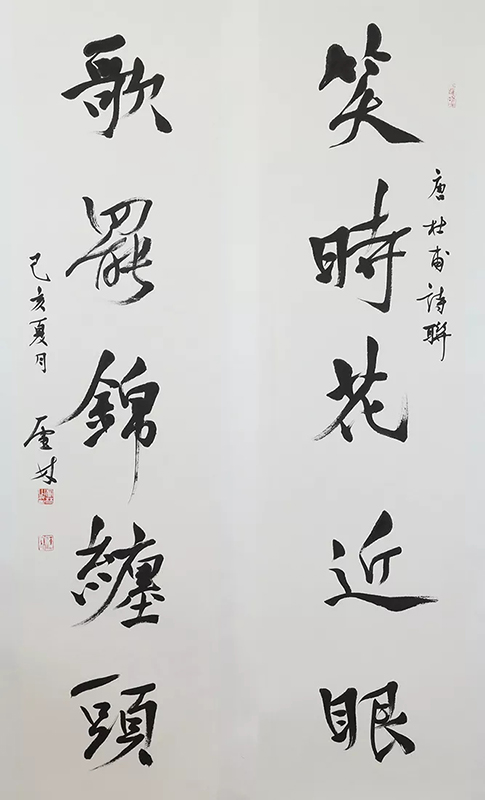 唐杜甫詩聯
笑時花近眼
歌罷錦纏頭
己亥夏月